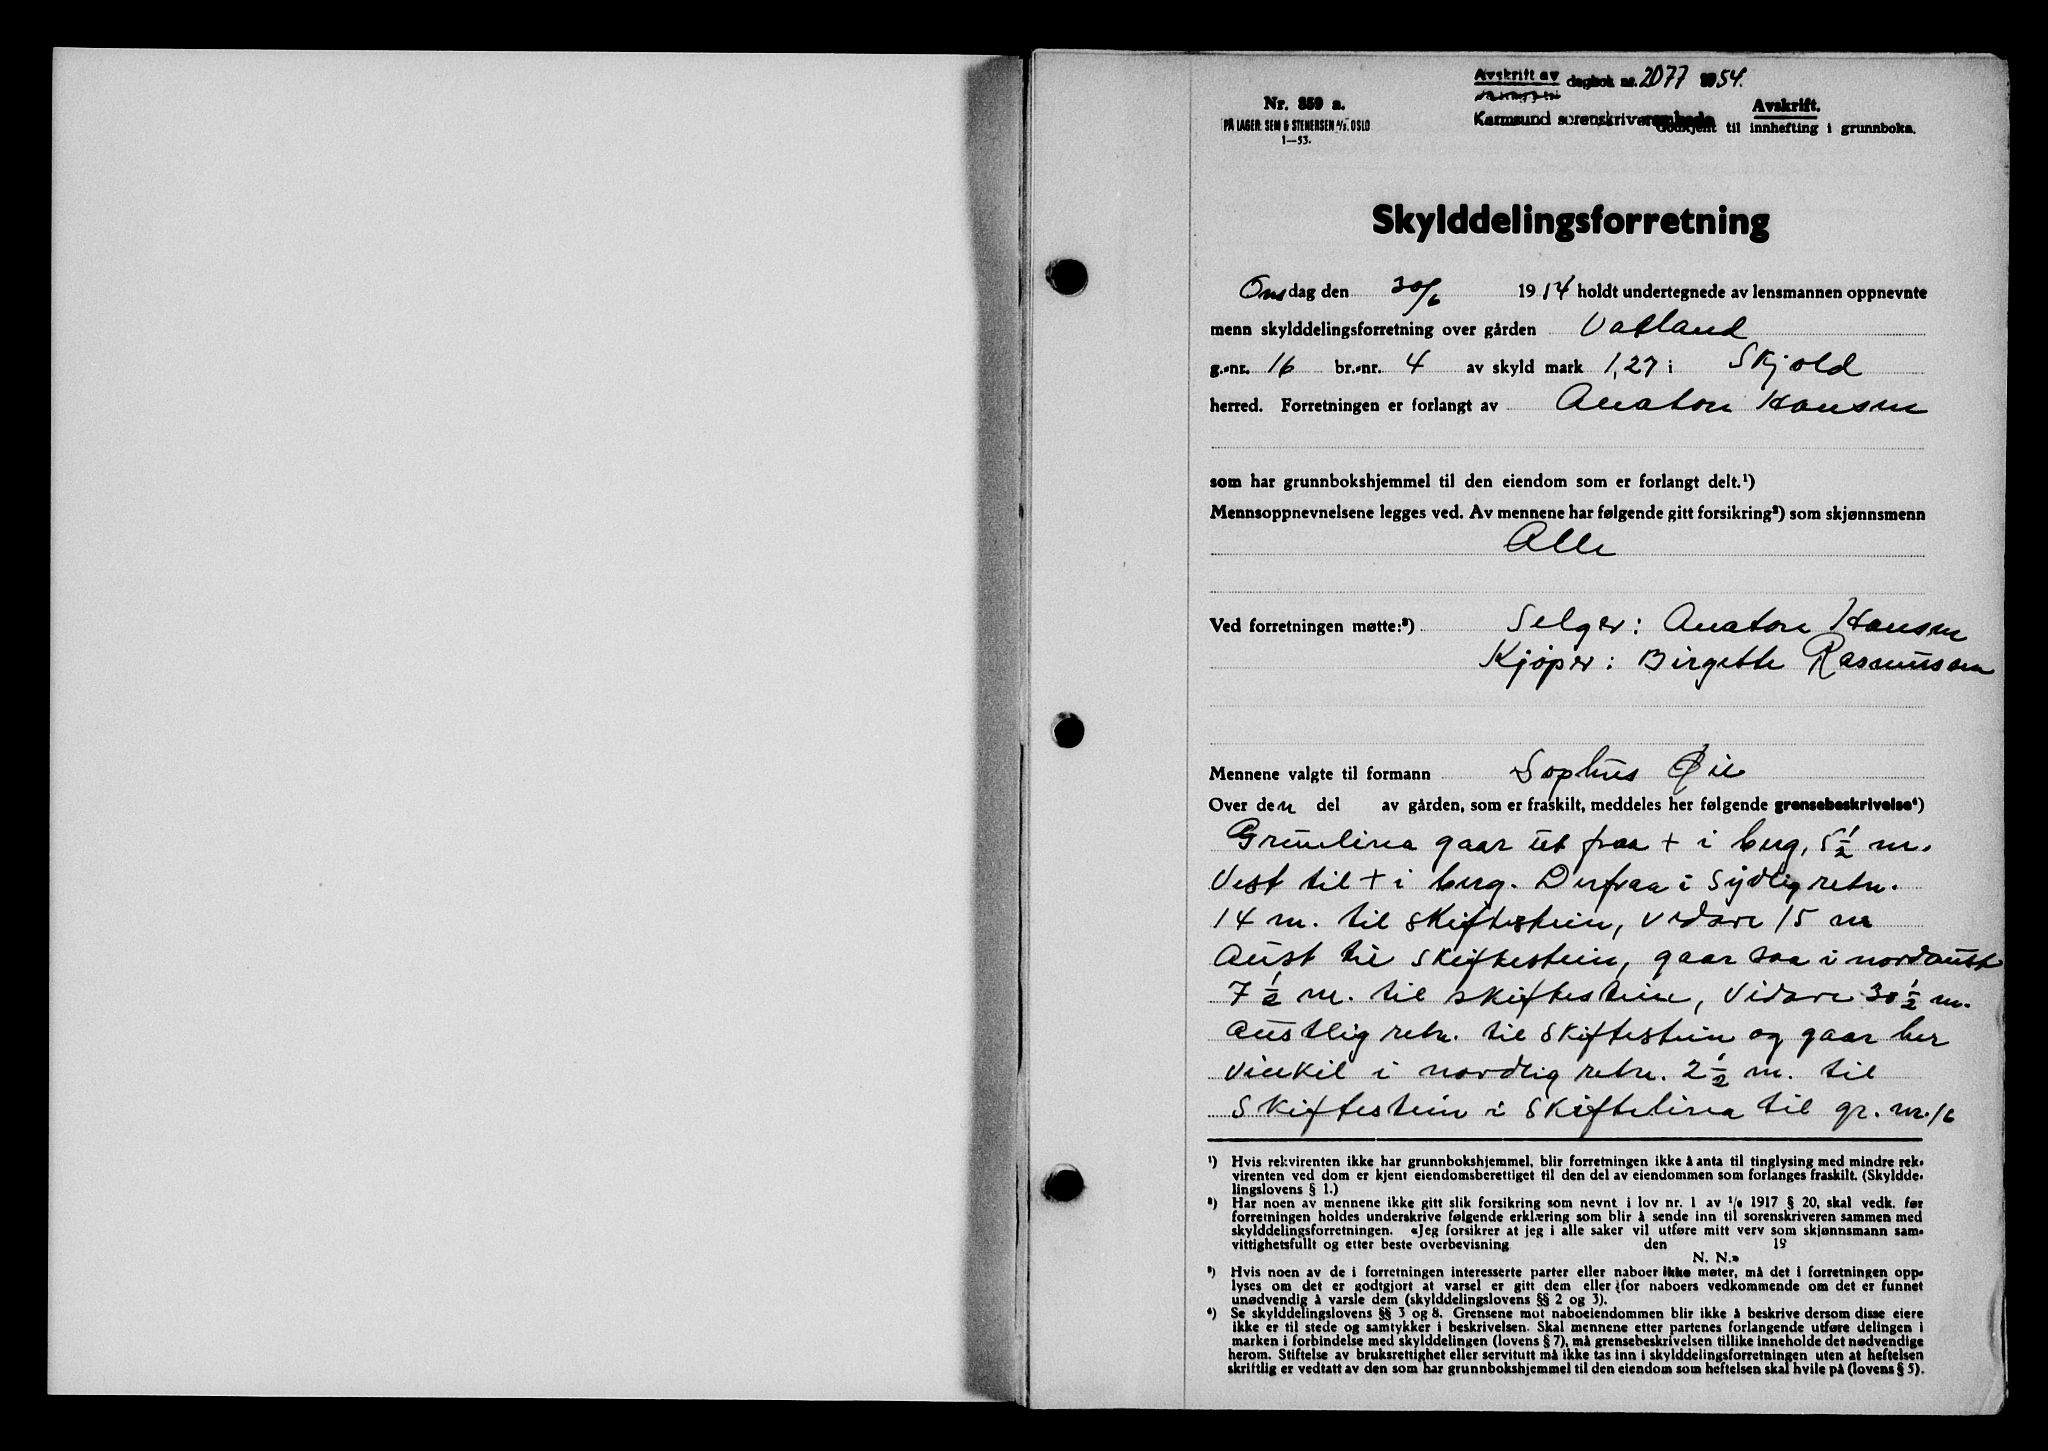 Avskrift av dagbok nr. 2077 1954.
Nr. 859 a.
Avskrift.
PÅ LAGER: SEM & STENERSEN A/S. OSLO
1—53.
Karmsund sorenskriverembede
Godkjent til innhefting i grunnboka.
Skylddelingsforretning
Onsdag den 30/6 1914 holdt undertegnede av lensmannen oppnevnte
menn skylddelingsforretning over gården Vatland
g.-nr. 16 br.-nr. 4 av skyld mark 1,27 i Skjold
herred. Forretningen er forlangt av Anaton Hansen
som har grunnbokshjemmel til den eiendom som er forlangt delt.¹)
Mennsoppnevnelsene legges ved. Av mennene har følgende gitt forsikring²) som skjønnsmenn
Alle
Ved forretningen møtte:³) Selger: Anaton Hansen
Kjøper: Birgette Rasmussen
Mennene valgte til formann Sophus Øie
Over den del av gården, som er fraskilt, meddeles her følgende grensebeskrivelse⁴)
Grenelina gaar ut fraa + i berg, 5½ m.
Vest til + i berg. Derfraa i Sydlig retn.
14 m. til skiftestein, vidare 15 m
Aust til skiftestein, gaar saa i nordaust
7½ m. til skiftestein, vidare 30½ m.
austlig retn. til skiftestein og gaar her
vinkil i nordlig retn. 2½ m. til
skiftestein i skiftelina til gr. nr. 16
¹) Hvis rekvirenten ikke har grunnbokshjemmel, blir forretningen ikke å anta til tinglysing med mindre rek-
virenten ved dom er kjent eiendomsberettiget til den del av eiendommen som forlanges fraskilt. (Skyldde-
lingslovens § 1.)
²) Har noen av mennene ikke gitt slik forsikring som nevnt i lov nr. 1 av ¹/₆ 1917 § 20, skal vedk. før
forretningen holdes underskrive følgende erklæring som blir å sende inn til sorenskriveren sammen med
skylddelingsforretningen. «Jeg forsikrer at jeg i alle saker vil utføre mitt verv som skjønnsmann sam-
vittighetsfullt og etter beste overbevisning den 19
N. N.»
³) Hvis noen av de i forretningen interesserte parter eller naboer ikke møter, må det i forretningen opp-
lyses om det er godtgjort at varsel er gitt dem eller for naboers vedkommende om det er funnet
unødvendig å varsle dem (skylddelingslovens §§ 2 og 3).
⁴) Se skylddelingslovens §§ 3 og 8. Grensene mot naboeiendommen blir ikke å beskrive dersom disse eiere
ikke er til stede og samtykker i beskrivelsen. Skal mennene etter partenes forlangende utføre delingen i
marken i forbindelse med skylddelingen (lovens § 7), må grensebeskrivelsen tillike inneholde det nødvendige
herom. Stiftelse av bruksrettighet eller servitutt må ikke tas inn i skylddelingsforretningen uten at heftelsen
skriftlig er vedtatt av den som har grunnbokshjemmel til den eiendom som heftelsen skal hvile på (lovens § 5).